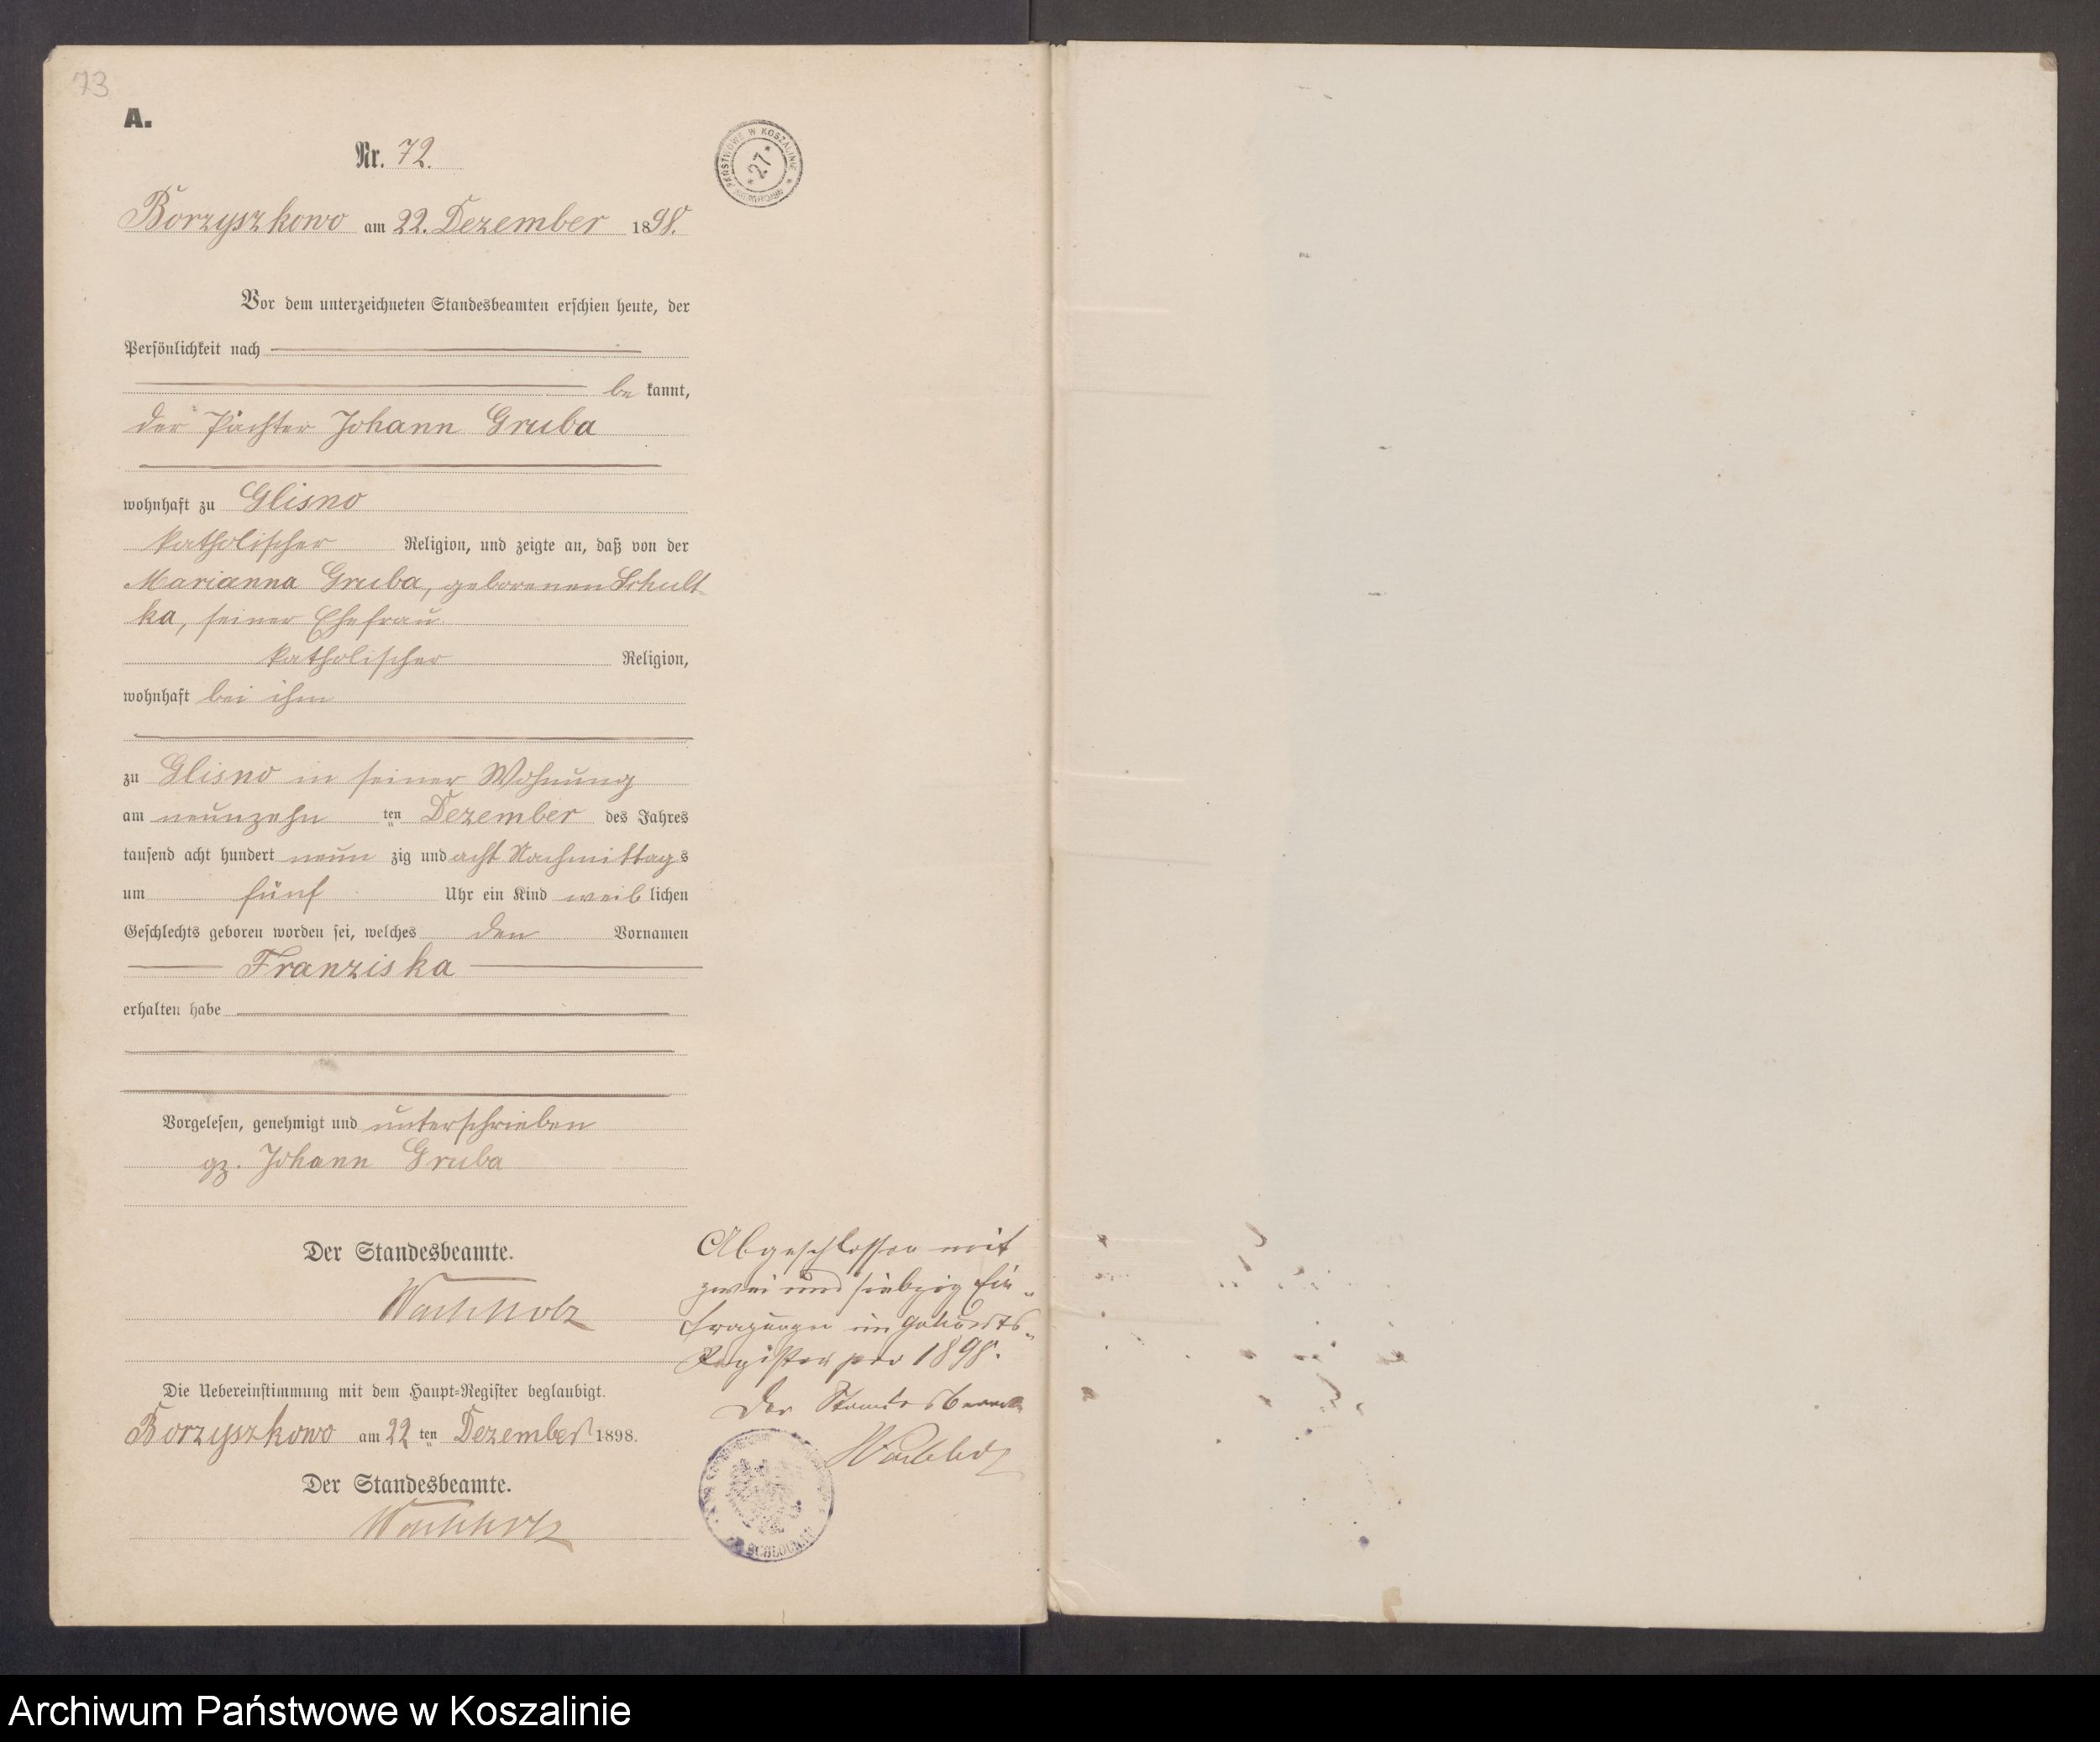 73
A.
Nr. 72.
PAŃSTWOWE W KOSZALINIE
* 27 *
Borzyszkowo am 22. Dezember 1898.
Vor dem unterzeichneten Standesbeamten erschien heute, der
Persönlichkeit nach
be kannt,
der Pächter Johann Gruba
wohnhaft zu Glisno
katholischer Religion, und zeigte an, daß von der
Marianna Gruba, geborenen Schult
ka, seiner Ehefrau
katholischer Religion,
wohnhaft bei ihm
zu Glisno in seiner Wohnung
am neunzehn ten Dezember des Jahres
tausend acht hundert neun zig und acht Nachmittags
um fünf Uhr ein Kind weib lichen
Geschlechts geboren worden sei, welches den Vornamen
Franziska
erhalten habe
Vorgelesen, genehmigt und unterschrieben
gz. Johann Gruba
Der Standesbeamte.
Wachholz
Abgeschlossen mit
zwei und siebzig Ein-
tragungen im Geburts-
Register pro 1898.
Der Standesbeamte
Wachholz
Die Uebereinstimmung mit dem Haupt-Register beglaubigt.
Borzyszkowo am 22 ten Dezember 1898.
Der Standesbeamte.
Wachholz
SCHLOCHAU
Archiwum Państwowe w Koszalinie